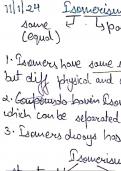 11/1/24 Isomerism
same ← → spa
(equal)
1. Isomers have same
but diff physical and
2. Compounds havin Isom
which can be separated
3. Isomers always has
Isomerism